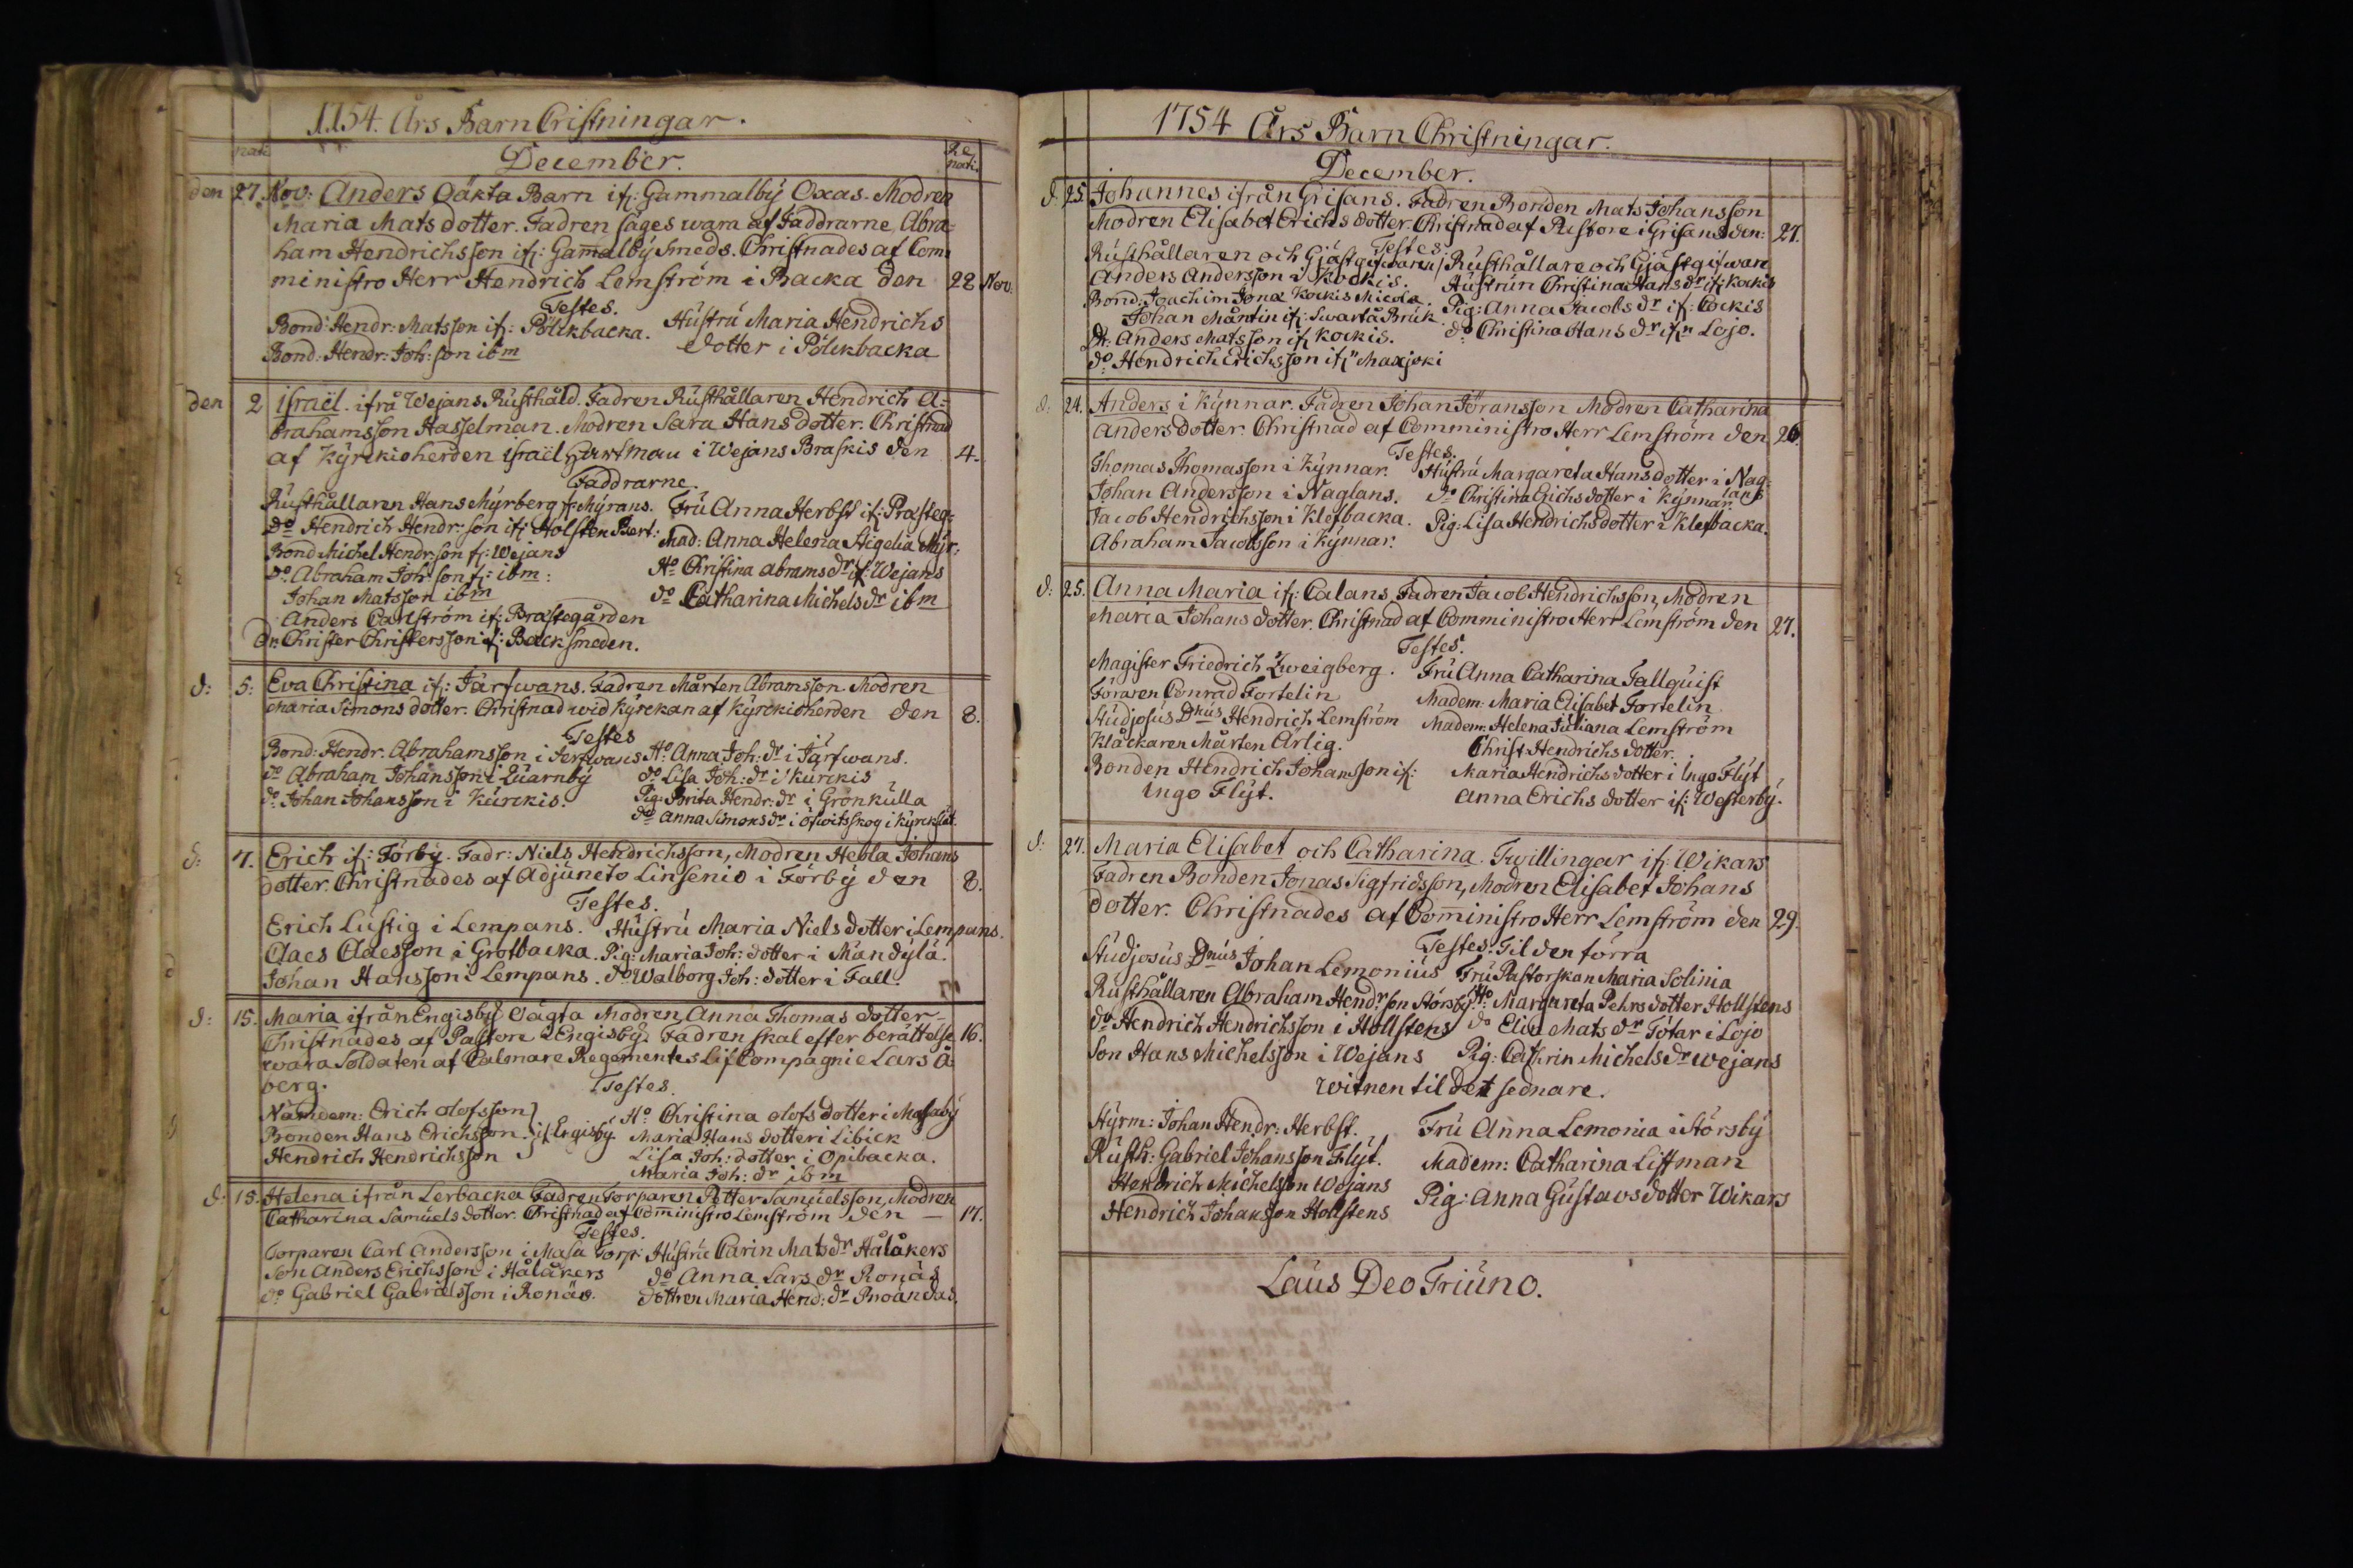 1754. Års Barn Cristningar.
nati December. Re nati.
den 27. Nov: Anders Oäkta Barn if: Gammalby Oxas. Modren
Maria Mats dotter. Fadren säges wara af Faddrarne, Abra=
ham Hendrichsson if: Gamalby Smeds. Christnades af Com-
ministro Herr Hendrich Lemström i Backa den 28 Nov.
Testes.
Bond: Hendr: Matsson if: Pölckbacka. Hústrú Maria Hendrichs
Bond: Hendr: Joh: son ibm dotter i Pölckbacka
den 2 Israël. ifrå Wejans Rústhåld. Fadren Rústhållaren Hendrich A=
brahamsson Hasselman. Modren Sara Hans dotter. Christnad
af Kyrckioherden Israël Hartman i Wejans Braskis den 4.
Faddrarne.
Rústhållaren Hans Myrberg f: Myrans. Frú Anna Herbst if: Prästeg=
do Hendrich Hendr: son if: Holsten Bert: Mad: Anna Helena Aigelia Myr:
Bond Michel Hendr: son f: Wejans
do Abraham Joh: son f: ibm: Ho Christina Abrams dr if: Wejans
Johan Matsson ibm do Catharina Michels dr ibm
Anders Carlström if: Prästegården
Dr: Christer Christersson if: Back smeden.
d: 5: Eva Christina if: Järfwans. Fadren Mårten Abramsson. Modren
Maria Simons dotter. Christnad wid Kyrckan af Kyrckioherden den 8.
Testes
Bond: Hendr: Abrahamsson i Jerfwans Ho Anna Joh: dr i Järfwans.
do Abraham Johansson i Qúarnby do Lisa Joh: dr i Kúrckis
do Johan Johansson i Kúrckis. Pig: Brita Hendr: dr i Grönkúlla
do Anna Simons dr i öfwitsskog i Kyrckslät.
d: 7. Erich if: Förby. Fadr: Niels Hendrichsson, Modren Hebla Johans
dotter. Christnades af Adjúncto Linsenio i Förby den 8.
Testes.
Erich Lústig i Lempans. Hústrú Maria Niels dotter i Lempans.
Claes Claesson i Grotbacka. Pig: Maria Joh: dotter i Mändylä.
Johan Hansson i Lempans. do Walborg Joh: dotter i Fall.
d: 15. Maria ifrån Engisby Oägta Modren Anna Thomas dotter-
Christnades af Pastore i Engisby. Fadren skal efter berättelse 16.
wara Soldaten af Calmare Regementes Lif Compagnie Lars Å=
berg. Testes.
Nämdem: Erich Olofsson Ho Christina Olofs dotter i Masaby
Bonden Hans Erichsson. if Engisby. Maria Hans dotter i Libick
Hendrich Hendrichsson Lisa Joh: dotter i Opibacka.
Maria Joh: dr ibm
d: 15. Helena ifrån Lerbacka Fadren Torparen Petter Samúelsson, Modren
Catharina Samúels dotter. Christnad af Comministro Lemström den 17.
Testes.
Torparen Carl Andersson i Masa Torp: Hústrú Carin Mats dr Hålåkers
Son Anders Erichsson i Hålåkers do Anna Lars dr Ronäs
do Gabriel Gabrielsson i Ronäs. dottren Maria Hend: dr Broändas.
1754 Års Barn Christningar.
December.
d. 25 Johannes ifrån Grisans. Fadren Bonden Mats Johansson
Modren Elisabet Erichs dotter. Christnad af Pastore i Grisans den: 27.
Testes
Rústhållaren och Gjästgifwaren Rústhållare och Gjästgifwar
Anders Andersson i Kockis. Hústrún Christina Hans dr if: Kockis
Bond: Joachim Jonæ Kockis Micola. Pig: Anna Jacobs dr if: Cockis
Johan Måntin if: Swartå Brúk. do Christina Hans dr ifn Lojo.
Dr: Anders Matsson if Kockis.
do Hendrich Erichsson if: Maxjoki
d. 24. Anders i Kynnar. Fadren Johan Jöransson Modren Catharina
Anders dotter. Christnad af Comministro Herr Lemström den 26.
Testes.
Thomas Thomasson i Kynnar. Hústrú Margareta Hans dotter i Nag=
Johan Andersson i Naglans. do Christina Erichs dotter i Kynnar. lans
Jacob Hendrichsson i Klefbacka. Pig: Lisa Hendrichs dotter i Klefbacka.
Abraham Jacobsson i Kynnar.
d: 25. Anna Maria if: Calans Fadren Jacob Hendrichsson, Modren
Maria Johans dotter. Christnad af Comministro Herr Lemström den 27.
Testes.
Magister Friedrich Zweigberg. Frú Anna Catharina Fallqúist
Föraren Conrad Fortelin Madem: Maria Elisabet Fortelin
Stúdjosús Dnús Hendrich Lemström Madem: Helena Júliana Lemström
Klåckaren Mårten Ärlig. Christ: Hendrichs dotter.
Bonden Hendrich Johansson if: Maria Hendrichs dotter i Ingo Flyt
Ingo Flyt. Anna Erichs dotter if: Westerby.
d: 27. Maria Elisabet och Catharina. Twillingar if: Wikars
Fadren Bonden Jonas Sigfridsson, Modren Elisabet Johans
dotter. Christnades af Comministro Herr Lemström den 29.
Testes: Til den förra
Stúdjosús Dnús Johan Lemoniús Frú Pastorskan Maria Solinia
Rústhållaren Abraham Hendr: son Störsby. Ho: Margareta Pehrs dotter Hollstens
do Hendrich Hendrichsson i Hollstens do Elin Mats dr Tötar i Lojo
Son Hans Michelsson i Wejans Pig: Cathrin Michels dr Wejans
Witnen til det sednare.
Styrm: Johan Hendr: Herbst. Frú Anna Lemonia i Störsby
Rústh: Gabriel Johansson Flyt. Madem: Catharina Liffman
Hendrich Michelsson Wejans Pig: Anna Gústavs dotter Wikars
Hendrich Johansson Hollstens
Laús Deo Triúno.